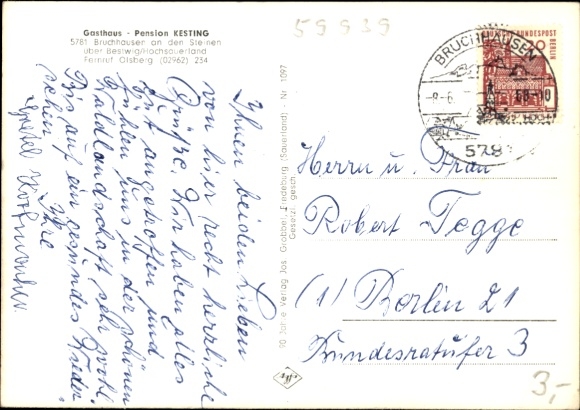 Gasthaus - Pension KESTING
5781 Bruchhausen an den Steinen
über Bestwig/Hochsauerland
Fernruf Olsberg (02962) 234
59939
Ihnen beiden Lieben
von hier recht herzliche
Grüße. Wir haben alles
gut angetroffen und
fühlen uns in der schönen
Waldlandschaft sehr wohl.
Bis auf ein gesundes Wieder-
sehen Ihre
90 Jahre Verlag Jos. Grobbel, Fredeburg (Sauerland) - Nr. 1097
Gesetzl. gesch.
DEUTSCHE BUNDESPOST
BERLIN
20
BRUCHHAUSEN
-8-6
68-00
578
Herrn u. Frau
Robert Tegge
(1) Berlin 21
Bundesratufer 3
3,-